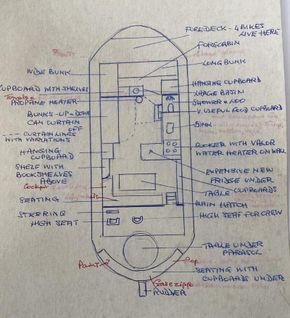 FOREDECK - 4 BIKES
LIVE HERE!
FORECABIN
WIDE BUNK
LONG BUNK
CUPBOARD WITH SHELVES
HANGING CUPBOARD
WASH BASIN
PROPANE HEATER
SHOWER + LOO
V. USEFUL FOOD CUPBOARD
BUNKS - UP + DOWN
CAN CURTAIN
OFF
SINK
CURTAIN LINES
WITH VARIATIONS
COOKER WITH VALOR
WATER HEATER ON WALL
HANGING
CUPBOARD
EXPENSIVE NEW
FRIDGE UNDER
SHELF WITH
BOOKSHELVES
ABOVE
CUPBOARDS
TABLE
Cockpit
SEATING
MAIN HATCH
HIGH SEAT FOR CREW
STEERING
HIGH SEAT
TABLE UNDER
PARASOL
SEATING WITH
CUPBOARDS UNDER
RUDDER